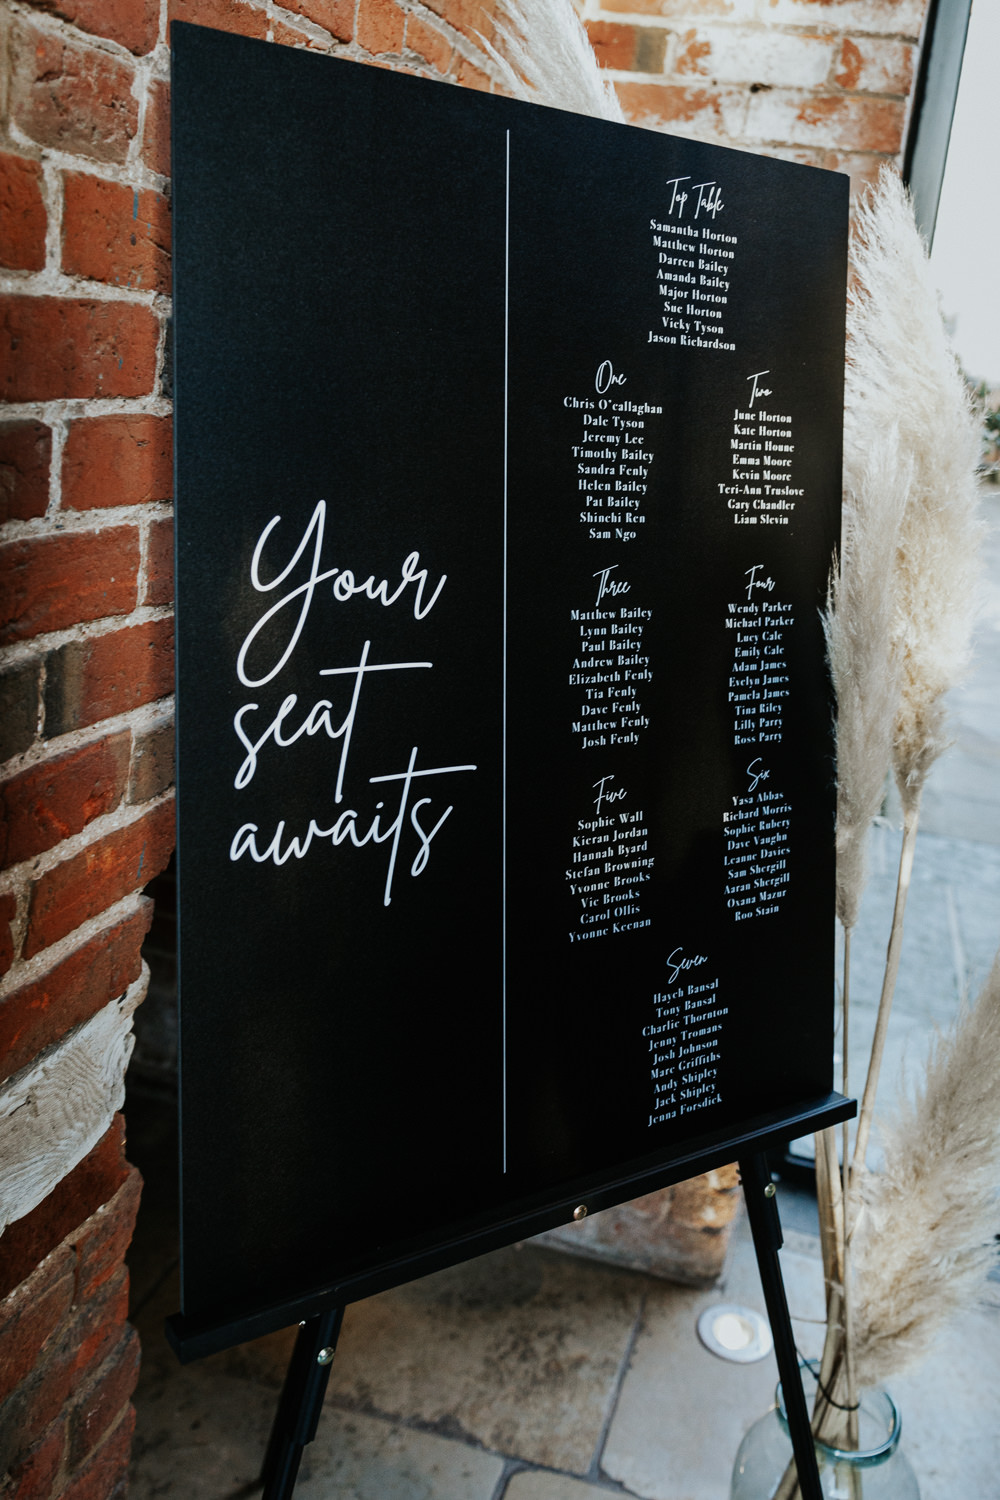 Your
seat
awaits
Top Table
Samantha Horton
Matthew Horton
Darren Bailey
Amanda Bailey
Major Horton
Sue Horton
Vicky Tyson
Jason Richardson
One
Chris O'callaghan
Dale Tyson
Jeremy Lee
Timothy Bailey
Sandra Fenly
Helen Bailey
Pat Bailey
Shinchi Ren
Sam Ngo
Two
June Horton
Kate Horton
Martin Houne
Emma Moore
Kevin Moore
Teri-Ann Truslove
Gary Chandler
Liam Slevin
Three
Matthew Bailey
Lynn Bailey
Paul Bailey
Andrew Bailey
Elizabeth Fenly
Tia Fenly
Dave Fenly
Matthew Fenly
Josh Fenly
Four
Wendy Parker
Michael Parker
Lucy Cale
Emily Cale
Adam James
Evelyn James
Pamela James
Tina Riley
Lilly Parry
Ross Parry
Five
Sophie Wall
Kieran Jordan
Hannah Byard
Stefan Browning
Yvonne Brooks
Vic Brooks
Carol Ollis
Yvonne Keenan
Six
Yasa Abbas
Richard Morris
Sophie Rubery
Dave Vaughn
Leanne Davies
Sam Shergill
Aaran Shergill
Oxana Mazur
Roo Stain
Seven
Haych Bansal
Tony Bansal
Charlie Thornton
Jenny Tromans
Josh Johnson
Marc Griffiths
Andy Shipley
Jack Shipley
Jenna Forsdick